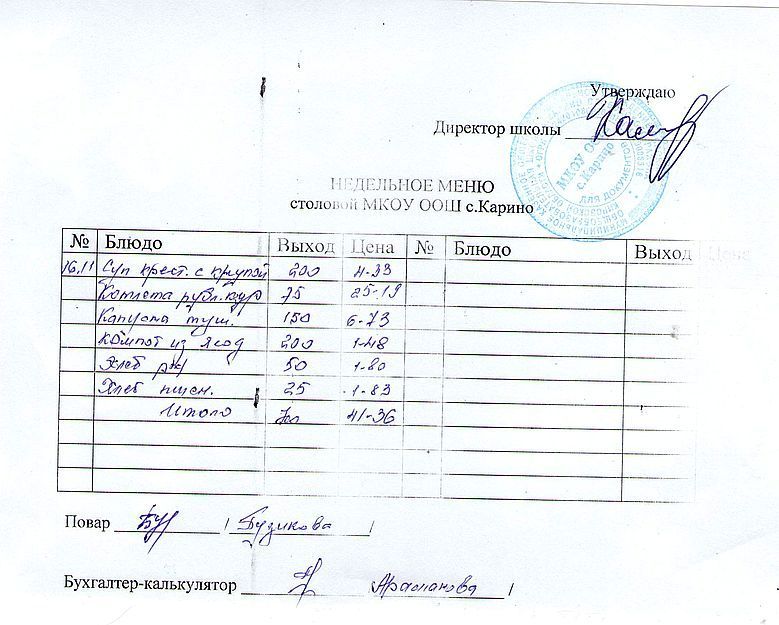 Утверждаю
Директор школы
МКОУ ОО
с.Карино
ДЛЯ ДОКУМЕНТОВ
НЕДЕЛЬНОЕ МЕНЮ
столовой МКОУ ООШ с.Карино
№ Блюдо Выход Цена № Блюдо Выход Цена
16.11 Суп крест. с крупой 200 4-33
Котлета рубл. кур 75 25-19
Капуста туш. 150 6-73
Компот из ягод 200 1-48
Хлеб рж 50 1-80
Хлеб пшен. 25 1-83
Итого 41-36
Повар / Бузикова /
Бухгалтер-калькулятор Арасланова /